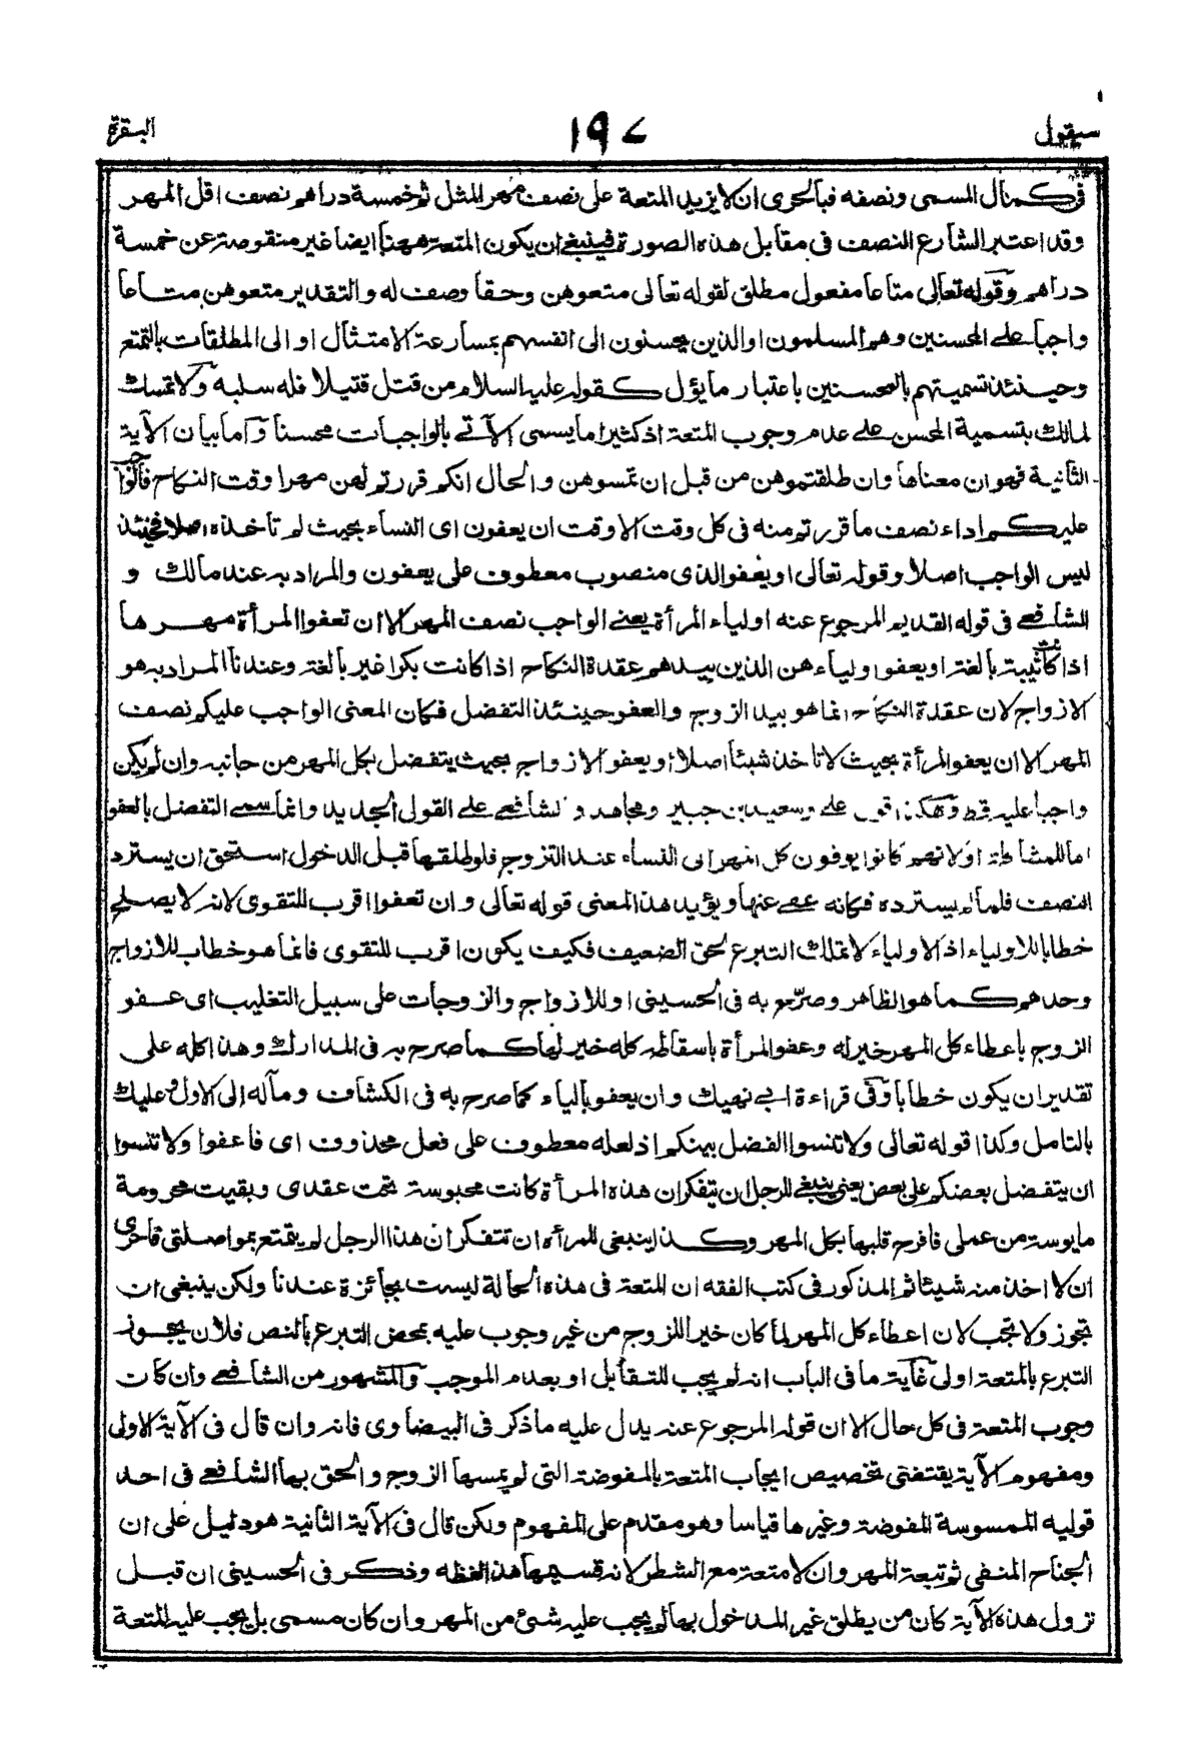 سيقول
١٩٧
البقرة
في كمال المسمى ونصفه فبالحرى ان لا يزيد المتعة على نصف مهر المثل ثم خمسة دراهم نصف اقل المهر
وقد اعتبر الشارع النصف في مقابل هذه الصورة فينبغي ان يكون المتعة ههنا ايضا غير منقوصة عن خمسة
دراهم وقوله تعالى متاعا مفعول مطلق لقوله تعالى متعوهن وحقا وصف له والتقدير متعوهن متاعا
واجبا على المحسنين وهم المسلمون او الذين يحسنون الى انفسهم بمسارعة الامتثال او الى المطلقات بالتمتع
وحينئذ تسميتهم بالمحسنين باعتبار ما يؤل كقوله عليه السلام من قتل قتيلا فله سلبه ولا تمسك
لمالك بتسمية المحسن على عدم وجوب المتعة اذ كثيرا ما يسمى الآتي بالواجبات محسنا واما بيان الآية
الثانية فهو ان معناها وان طلقتموهن من قبل ان تمسوهن والحال انكم قررتم لهن مهرا وقت النكاح فالواجب
عليكم اداء نصف ما قررتم منه في كل وقت الا وقت ان يعفون اى النساء بحيث لم تأخذه اصلا فحينئذ
ليس الواجب اصلا وقوله تعالى او يعفو الذى منصوب معطوف على يعفون والمراد به عند مالك و
الشافعي في قوله القديم المرجوع عنه اولياء المرأة يعني الواجب نصف المهر الا ان تعفوا المرأة مهرها
اذا كانت ثيبة بالغة او يعفو اولياءهن الذين بيدهم عقدة النكاح اذا كانت بكرا غير بالغة وعندنا المراد به هو
الازواج لان عقدة النكاح انما هو بيد الزوج والعفو حينئذ التفضل فكان المعنى الواجب عليكم نصف
المهر الا ان يعفو المرأة بحيث لا تاخذ شيئا اصلا او يعفو الازواج بحيث يتفضل بكل المهر من جانبه وان لم يكن
واجبا عليه قط وهكذا قول علي وسعيد بن جبير ومجاهد والشافعي على القول الجديد وانما سمي التفضل بالعفو
اما للمشاكلة او لانهم كانوا يوفون كل المهر الى النساء عند التزوج فلو طلقها قبل الدخول استحق ان يسترد
النصف فلما لم يسترده فكانه عفى عنها ويؤيد هذا المعنى قوله تعالى وان تعفوا اقرب للتقوى لانه لا يصلح
خطابا للاولياء اذ الاولياء لا تملك التبرع لحق الضعيف فكيف يكون اقرب للتقوى فانما هو خطاب للازواج
وحدهم كما هو الظاهر وصرحو به في الحسيني او للازواج والزوجات على سبيل التغليب اى عفو
الزوج باعطاء كل المهر خير له وعفو المرأة باسقاطه كله خير لها كما صرح به في المدارك وهذا كله على
تقدير ان يكون خطابا وفي قراءة ابي نهيك وان يعفو بالياء كما صرح به في الكشاف ومآله الى الاول وعليك
بالتامل وكذا قوله تعالى ولا تنسوا الفضل بينكم اذ لعله معطوف على فعل محذوف اى فاعفوا ولا تنسوا
ان يتفضل بعضكم على بعض يعني ينبغي للرجل ان يتفكر ان هذه المرأة كانت محبوسة تحت عقدى وبقيت محرومة
مايوسة من عملى فافرح قلبها بكل المهر وكذا ينبغي للمرأة ان تتفكر ان هذا الرجل لم يتمتع بمواصلتى فاحرى
ان لا اخذ منه شيئا ثم المذكور في كتب الفقه ان المتعة في هذه الحالة ليست بجائزة عندنا ولكن ينبغي ان
تجوز ولا تجب لان اعطاء كل المهر لما كان خيرا للزوج من غير وجوب عليه بمحض التبرع بالنص فلان يجوز
التبرع بالمتعة اولى غاية ما في الباب انه لم يجب للتقابل او بعدم الموجب والمشهور من الشافعي وان كان
وجوب المتعة في كل حال الا ان قوله المرجوع عنه يدل عليه ما ذكر في البيضاوى فانه وان قال في الآية الاولى
ومفهوم الآية يقتضى تخصيص ايجاب المتعة بالمفوضة التى لم يمسها الزوج والحق بها الشافعي في احد
قوليه الممسوسة المفوضة وغيرها قياسا وهو مقدم على المفهوم ولكن قال في الآية الثانية هو دليل على ان
الجناح المنفى ثم تبعة المهر وان لا متعة مع الشطر لانه قسيمها هذا لفظه وذكر في الحسيني ان قبل
نزول هذه الآية كان من يطلق غير المدخول بها لم يجب عليه شئ من المهر وان كان مسمى بل يجب عليه المتعة